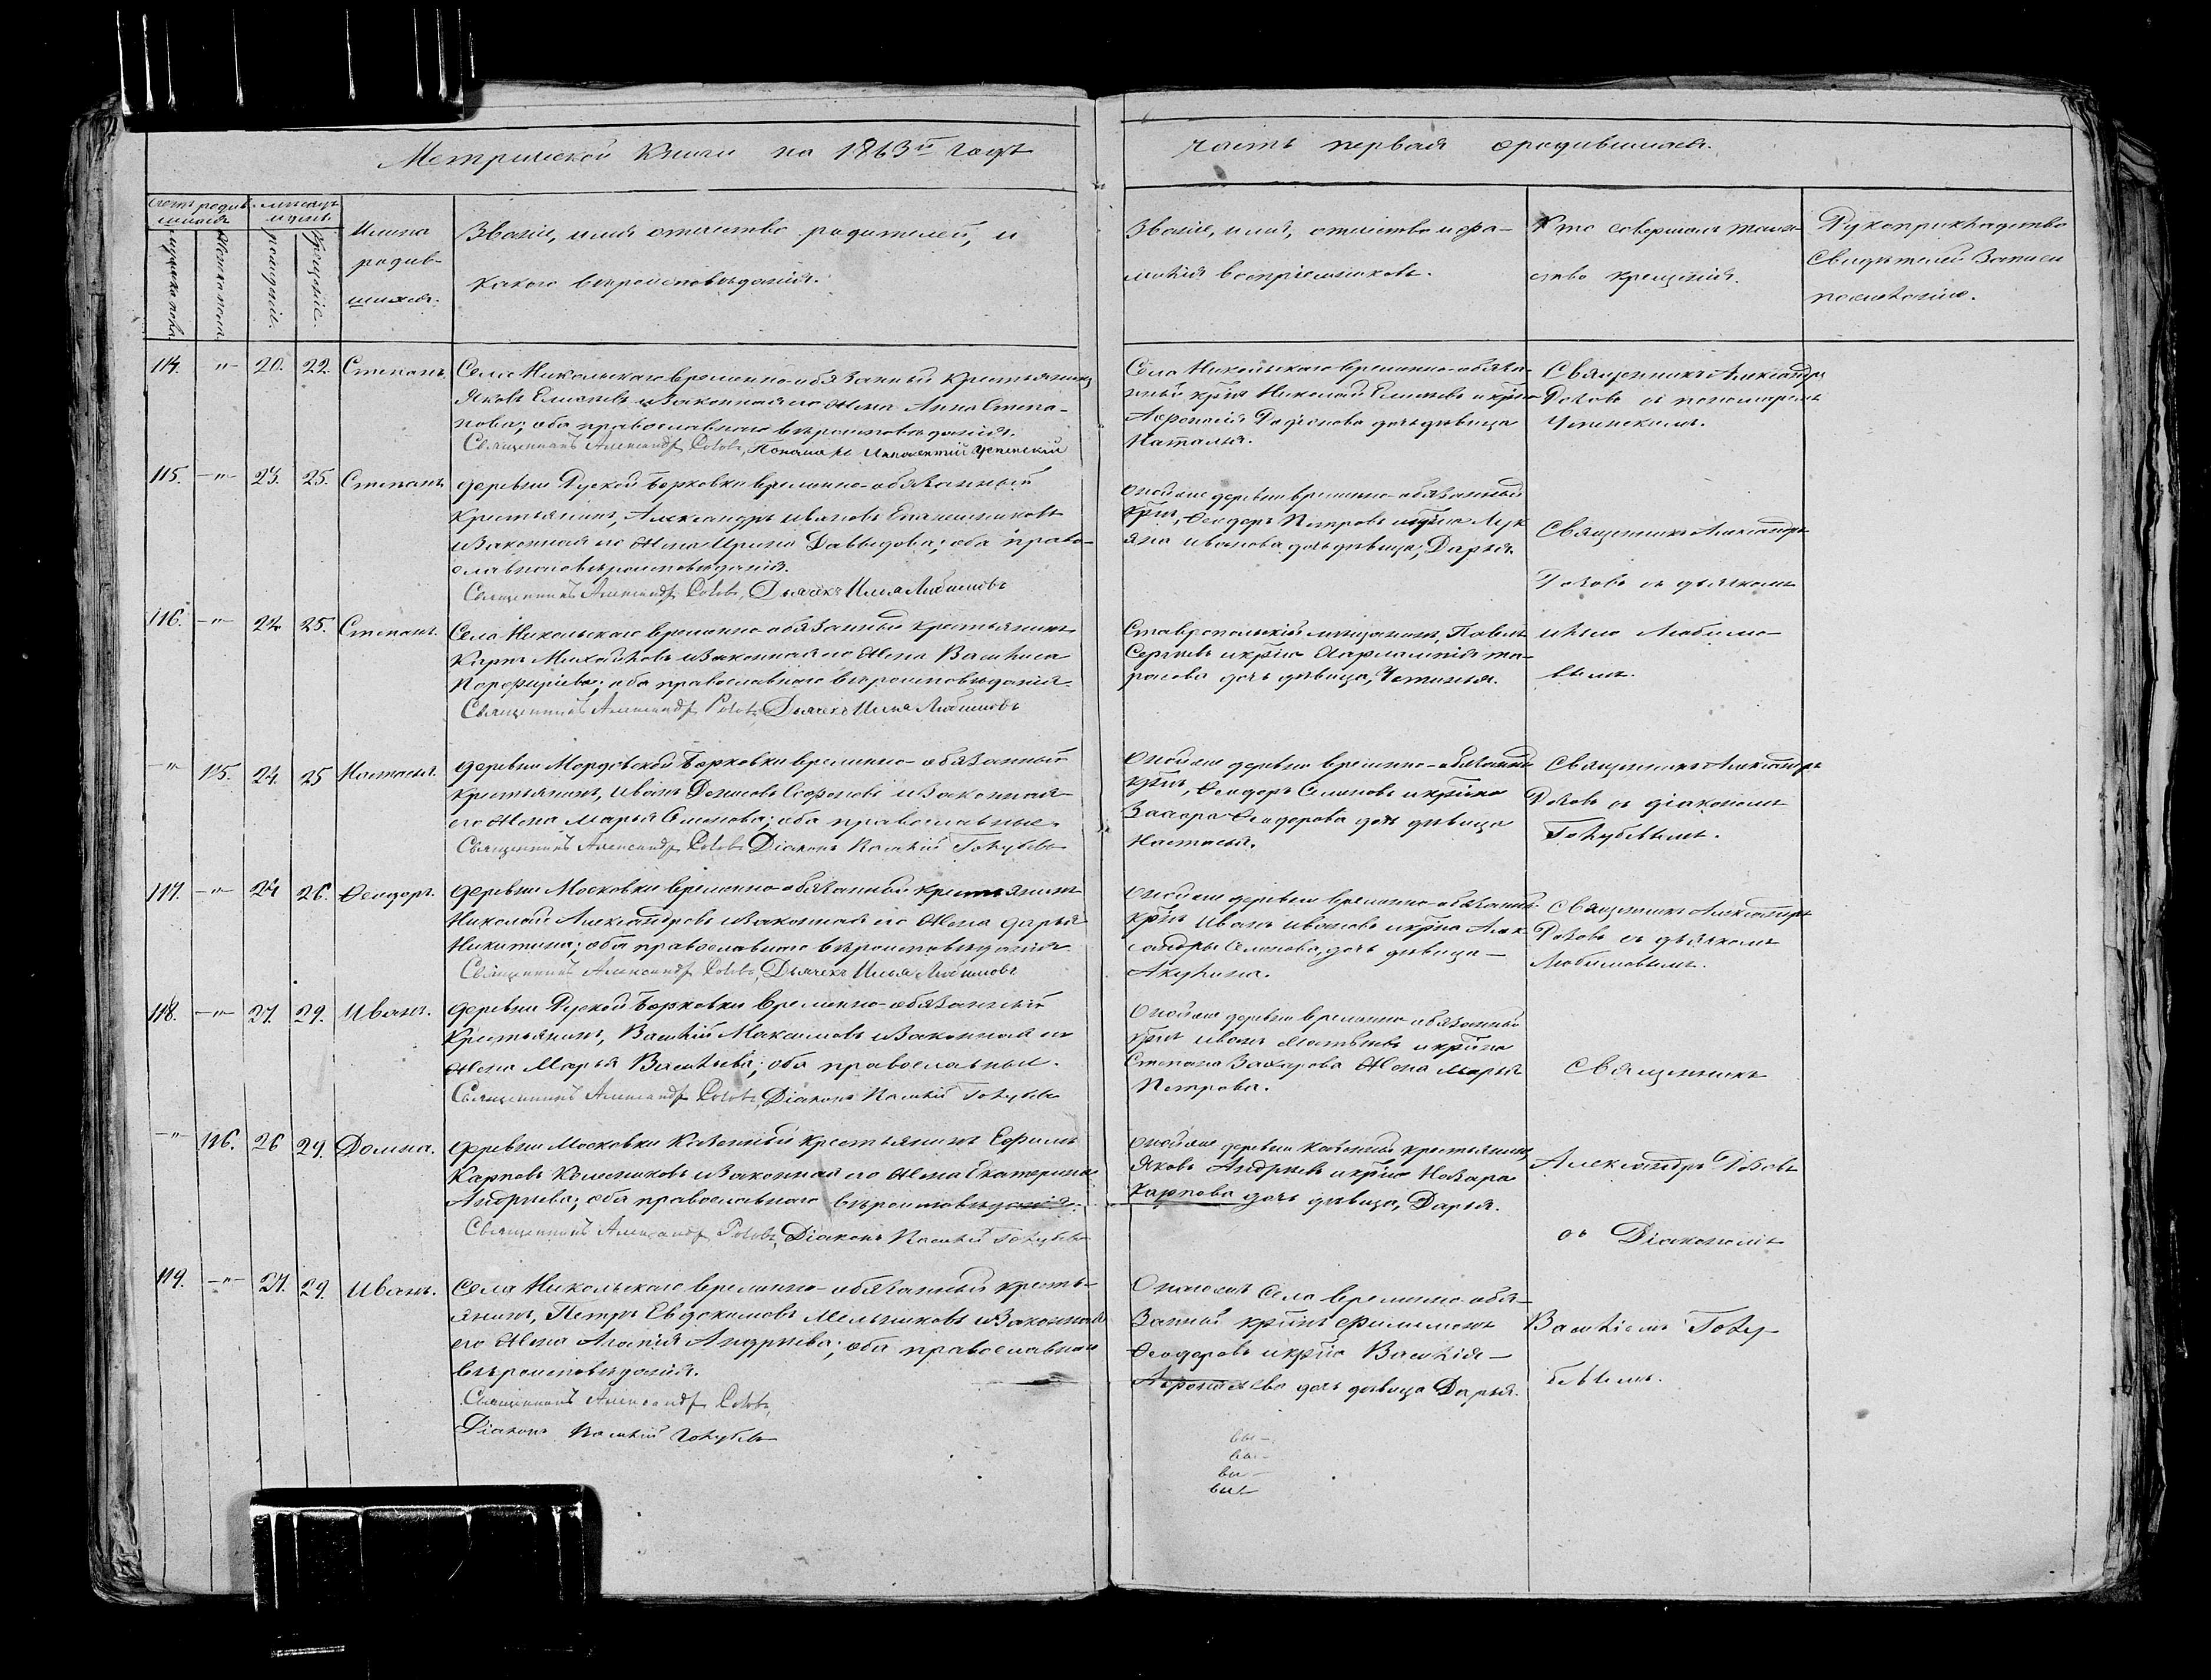 Метрической Книги на 1863й годъ
часть первая о родившихся.
Счетъ родив-
шихся
Мѣсяцъ
и день
мужеска пола.
Женска пола.
рожденія.
Крещенія.
Имена
родив-
шихся.
Званіе, имя отчество родителей, и
какого вѣроисповѣданія.
Званіе, имя, отчество и фа-
милія воспріемниковъ.
Кто совершалъ таин-
ство крещенія.
Рукоприкладство
Свидѣтелей Записи
по желанію.
114. -"- 20. 22. Степанъ.
Села Никольскаго временно-обязанный Крестьянинъ
Яковъ и законная его жена Анна Степа-
нова; оба православнаго вѣроисповѣданія.
Священникъ Александръ Ровъ, Пономарь Иннокентий Успенский
Села Никольскаго временно-обяза-
нный крнъ Николай и крна
Родіонова дочь дѣвица
Наталья.
Священникъ Александръ
съ пономаремъ
Успенскимъ.
115. -"- 23. 25. Степанъ
деревни Руской Борковки временно-обязанный
Крестьянинъ, Александръ Ивановъ
и законная его жена Ирина Давыдова; оба право-
славнаго вѣроисповѣданія.
Священникъ Александръ Дьячекъ Илья Любимовъ
Оной же деревни временно-обязанный
крнъ, Ѳеодоръ Петровъ и крна Лук
яна Иванова дочь дѣвица, Дарья.
Священникъ Александръ
съ дьячкомъ
116. -"- 24 25. Степанъ.
Села Никольскаго временно-обязанный крестьянинъ
Карпъ Михайловъ и законная его жена Василиса
Порфирьева; оба православнаго вѣроисповѣданія.
Священникъ Александръ Дьячекъ Илья Любимовъ
Ставропольскій мѣщанинъ, Павелъ
Сергѣевъ и крна Харлампія та-
расова дочь дѣвица, Устинья.
Ильею Любимо-
вымъ.
-"- 115. 24. 25 Настасья.
деревни Мордовской Борковки временно-обязанный
крестьянинъ, Иванъ Денисовъ Софоновъ и законная
его жена Марья Семенова; оба православные.
Священникъ Александръ Діаконъ Василій Голубевъ
Оной же деревни временно-обязанный
крнъ, Ѳеодоръ Семеновъ и крнка
Захара Ѳеодорова дочь дѣвица
Настасья.
Священникъ Александръ
съ діакономъ
Голубевымъ.
117. -"- 24 26. Ѳеодоръ.
деревни Московки временно-обязанный крестьянинъ
Николай Александровъ и законная его жена дарья
Никитина; оба православнаго вѣроисповѣданія
Священникъ Александръ Дьячекъ Илья Любимовъ
Оной же деревни временно-обязанный
крнъ Иванъ Ивановъ и крна Алек
сандры Семенова, дочь дѣвица-
Акулина.
Священникъ Александръ
съ дьячкомъ
Любимовымъ.
118. -"- 27. 29. Иванъ.
деревни Руской Борковки временно-обязанный
Крестьянинъ, Василій Максимовъ и законная его
жена Марья Васильева; оба православныи.
Священникъ Александръ Діаконъ Василій Голубевъ
Оной же деревни временно обязанный
крнъ Иванъ Матвѣевъ и крна
Степана Захарова жена Марья
Петрова.
Священникъ
-"- 116. 26 29. Домна.
деревни Московки Казенный крестьянинъ Ефимъ
Карповъ Колесниковъ и законная его жена Екатерина
Андреева; оба православнаго вѣроисповѣданія.
Священникъ Александръ Діаконъ Василій Голубевъ
Оной же деревни казенный крестьянинъ
Яковъ Андреевъ и крна Назара
Карпова дочь дѣвица, Дарья.
Александръ
съ Діакономъ
119. -"- 27. 29. Иванъ.
Села Никольскаго временно-обязанный кресть-
янинъ, Петръ Евдокимовъ Мельниковъ и законная
его жена Агафія Андреева; оба православнаго
вѣроисповѣданія.
Священникъ Александръ
Діаконъ Василій Голубевъ
Онаго же Села временно обя-
занный крнъ Филимонъ
Ѳеодоровъ и крна Василія-
дочь дѣвица Дарья.
Василіемъ Голу-
бевымъ.
вы-
вы-
вы-
вы-